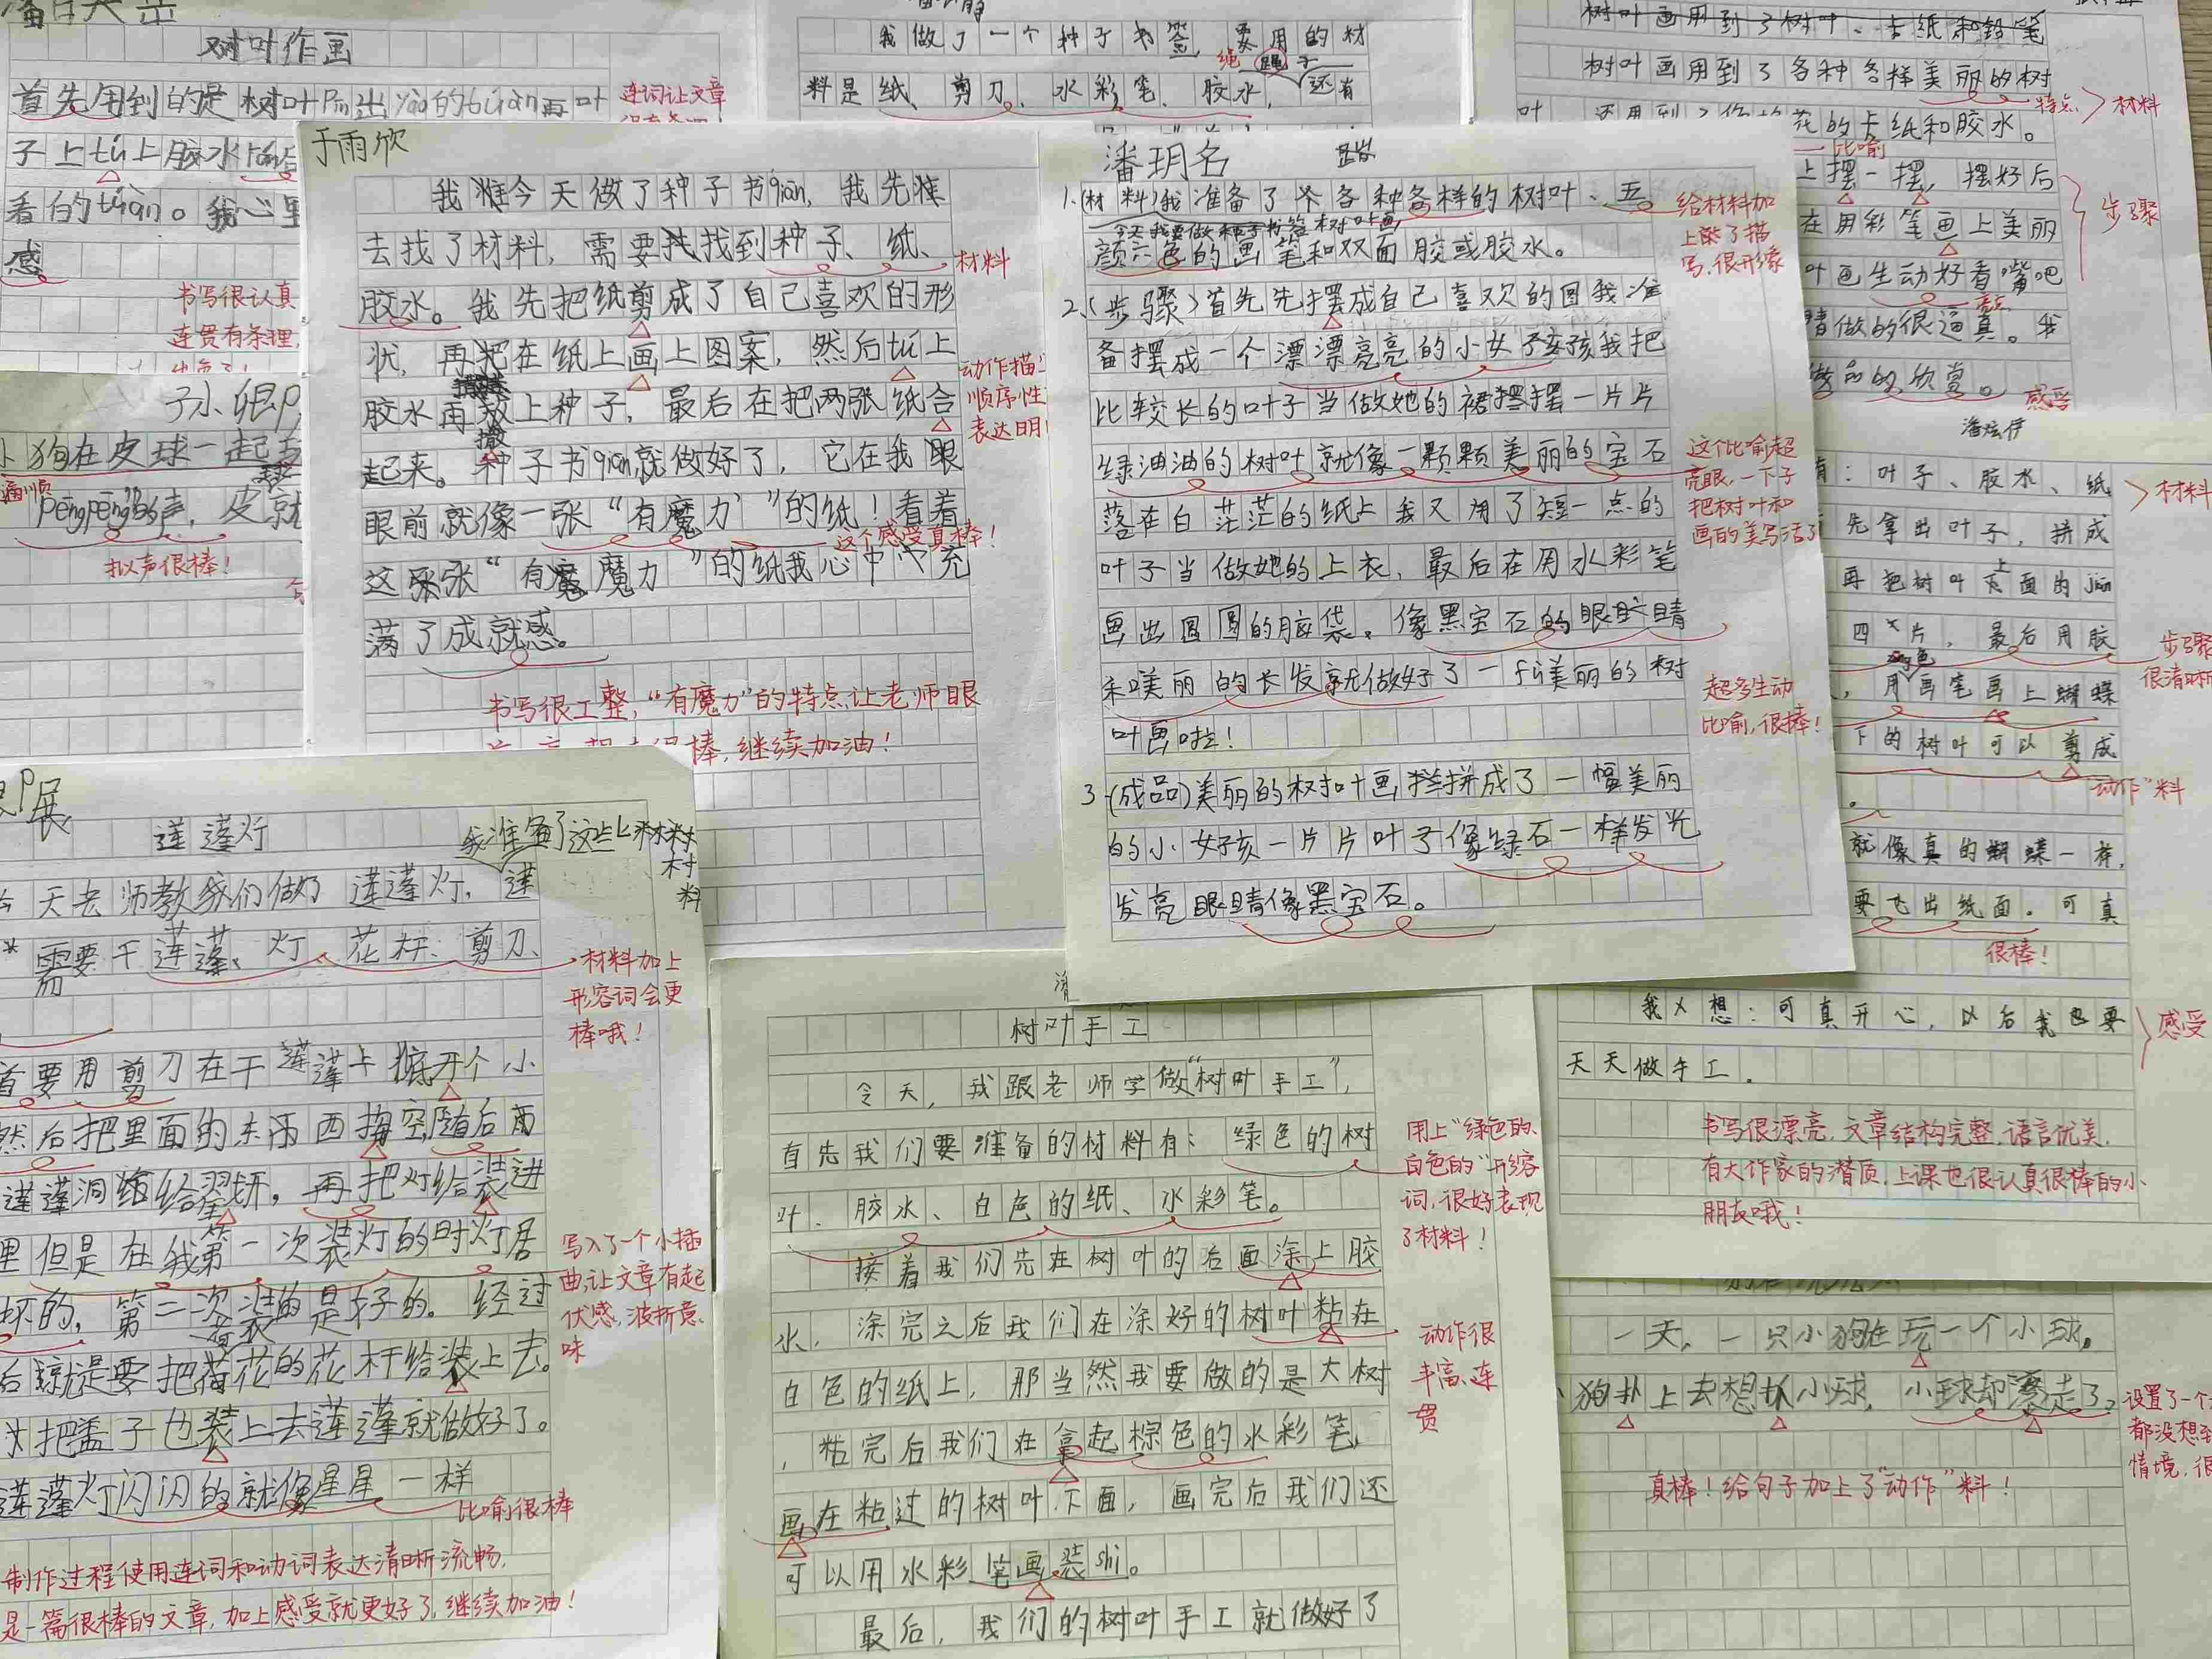 树叶作画
首先用到的是树叶Pin出yào的túàn再叶
子上tú上胶水
看的túàn。我心里
感
连词让文章
书写很认真
连贯有条理,
我做了一个种子书签,要用的材
绳子
料是纸、剪刀、水彩笔、胶水,还有
树叶画用到了树叶、卡纸和铅笔
树叶画用到了各种各样美丽的树
特点
材料
花的卡纸和胶水。
比喻
上摆一摆,摆好后
在用彩笔画上美丽
步骤
叶画生动好看嘴吧
亮点
睛做的很逼真。我
做品的欣赏。
感受
于雨欣
我准今天做了种子书qiān,我先准
去找了材料,需要找找到种子、纸、
材料
胶水。我先把纸剪成了自己喜欢的形
状,再把在纸上画上图案,然后tú上
胶水再放上种子,最后在把两张纸合
撒
动作描
顺序性
表达明
起来。种子书qiān就做好了,它在我眼
眼前就像一张“有魔力”的纸!看着
这个感受真棒!
这张张“有魔魔力”的纸我心中充
满了成就感。
书写很工整,“有魔力”的特点让老师眼
棒,继续加油!
潘玥名
1.(材料)我准备了各种各样的树叶、五
今天我要做种子书签树叶画
颜六色的画笔和双面胶或胶水。
给材料加
上了描
写,很形象
2.(步骤)首先先摆成自己喜欢的图我准
备摆成一个漂漂亮亮的小女孩我把
比较长的叶子当做她的裙摆摆一片片
绿油油的树叶就像一颗颗美丽的宝石
落在白茫茫的纸上我又用了短一点的
这个比喻超
亮眼,一下子
把树叶和
画的美写活了
叶子当做她的上衣,最后在用水彩笔
画出圆圆的脑袋。像黑宝石的眼睛
和美丽的长发就做好了一fú美丽的树
叶画啦!
超多生动
比喻,很棒!
3.(成品)美丽的树叶画拼成了一幅美丽
的小女孩一片片叶子像绿石一样发光
发亮眼睛像黑宝石。
狗在皮球一起
通顺
pēngpēng的声,皮就
拟声很棒!
潘炫伊
有:叶子、胶水、纸
材料
先拿出叶子,拼成
再把树叶下面的jiān
上
四片,最后用胶
步骤
很清晰
,用画笔画上蝴蝶
下的树叶可以剪成
“动作”料
就像真的蝴蝶一样,
要飞出纸面。可真
很棒!
我想:可真开心,以后我也要
天天做手工。
感受
书写很漂亮,文章结构完整,语言优美,
有大作家的潜质,上课也很认真很棒的小
朋友哦!
莲蓬灯
我准备了这些材料
今天老师教我们做了莲蓬灯,莲
需要干莲蓬、灯、花杆、剪刀、
材料加上
形容词会更
棒哦!
首要用剪刀在干莲蓬上掀开个小
然后把里面的东西西掏空随后
莲蓬洞给
再把灯给装进
里但是在我第一次装灯的时灯居
坏的,第二次装的是好的。经过
写入了一个小插
曲,让文章有起
伏感,波折意
味
后就是要把荷花的花杆给装上去。
把盖子也装上去莲蓬就做好了。
莲蓬灯闪闪的就像星星一样
比喻很棒
制作过程使用连词和动词表达清晰流畅,
是一篇很棒的文章,加上感受就更好了,继续加油!
树叶手工
今天,我跟老师学做“树叶手工”,
首先我们要准备的材料有:绿色的树
叶、胶水、白色的纸、水彩笔。
用上“绿色的、
白色的”形容
词,很好表现
了材料!
接着我们先在树叶的后面涂上胶
水,涂完之后我们在涂好的树叶粘在
白色的纸上,那当然我要做的是大树
,粘完后我们在拿起棕色的水彩笔
动作很
丰富、连
贯
画在粘过的树叶下面,画完后我们还
可以用水彩笔画装shì。
最后,我们的树叶手工就做好了
一天,一只小狗在玩一个小球。
狗扑上去想抓小球,小球却滚走了,
设置了一个
都没想到
情境,很
真棒!给句子加上了“动作”料!